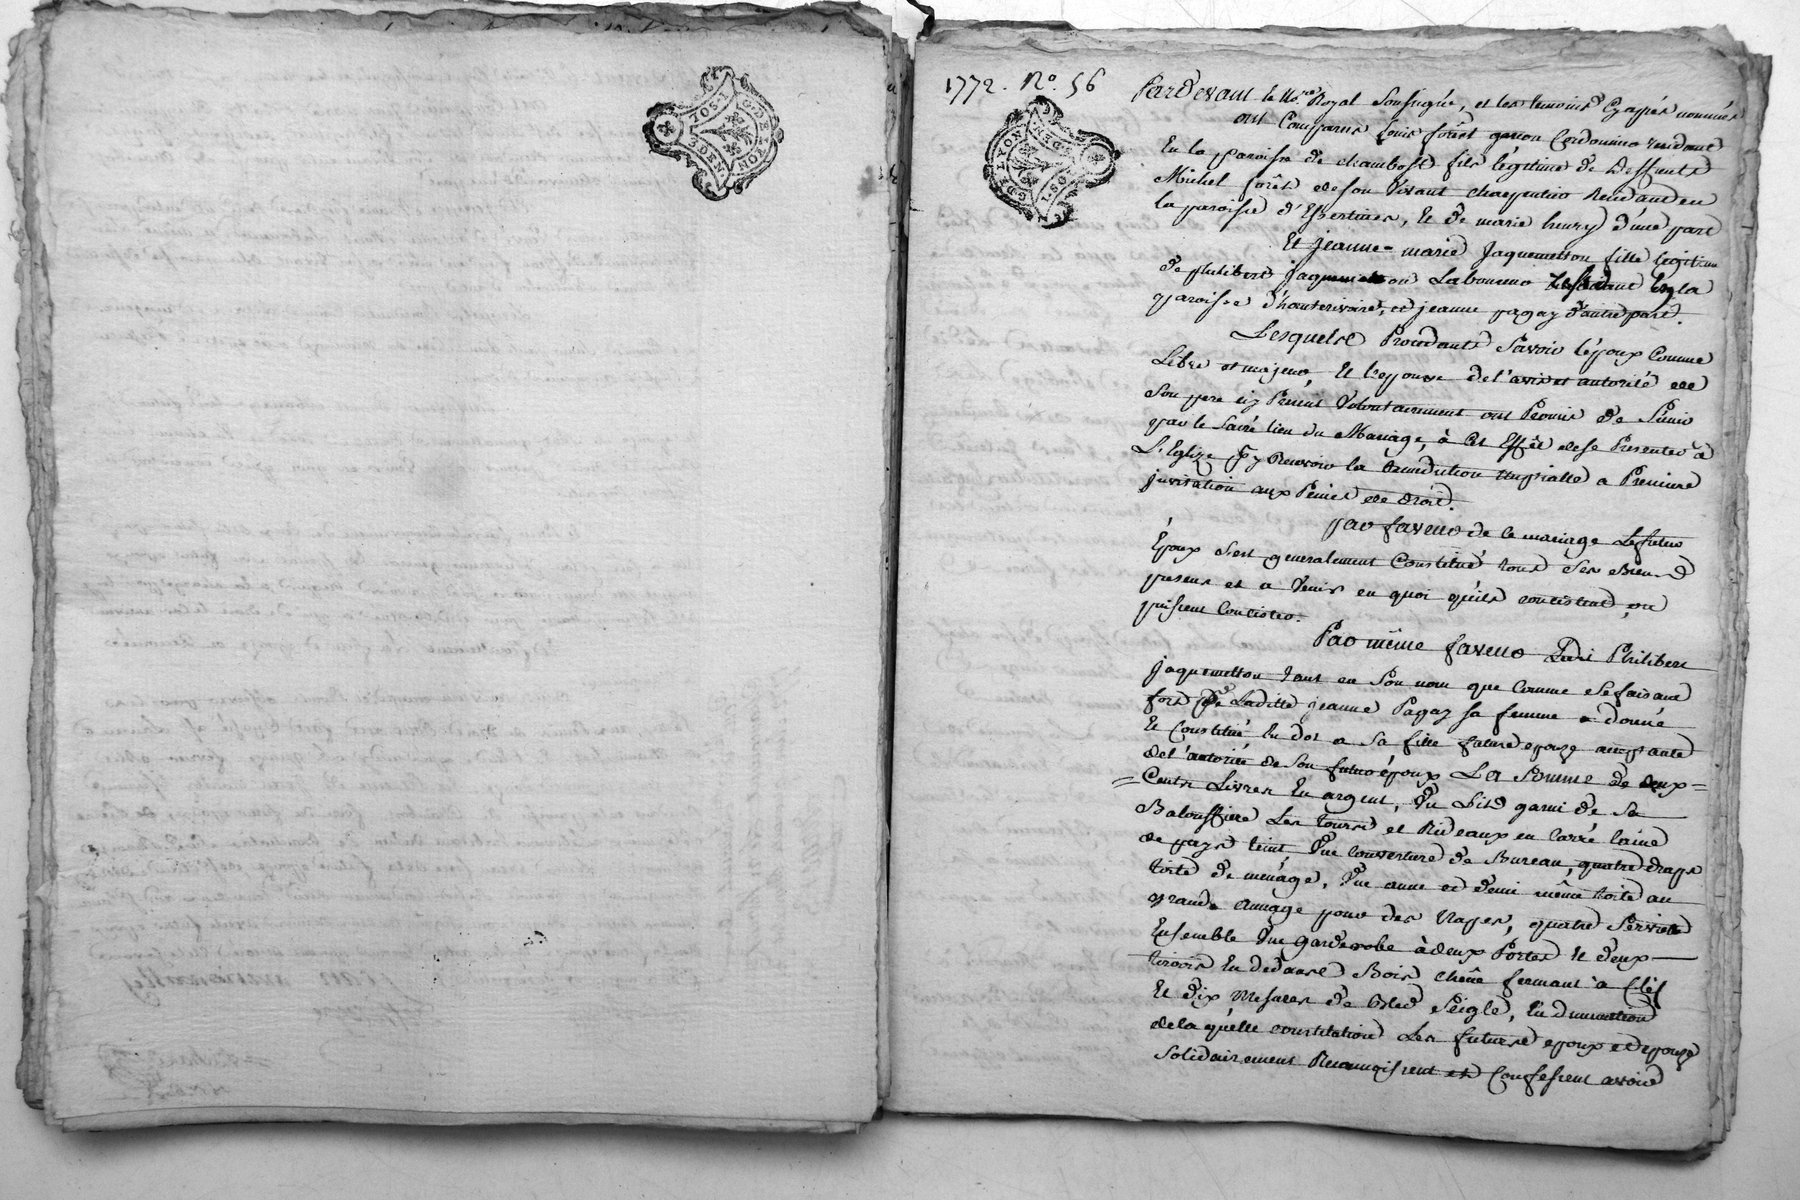 1772. No. 56
Pardevant le No.re Royal Soussigné, et les temoins Cyaprés nommés
ont Comparus Louis forêst garcon Cordonnier residant
En la paroisse de chambost fils légitime de deffunts
Michel forêst de son Vivant charpentier Residant en
la paroisse d'Essertines, Et de marie henry d'une part
Et jeanne-marie Jaquemetton fille légitime
de philibert jaquemetton Laboureur Residant En la
paroisse d'hauterivoire, et jeanne pagay d'autre part.
Lesquels Procedants Savoir l'époux Comme
Libre et majeur, Et l'epouse de l'avis et autorité de
Son pere icy Present Volontairement ont Promis de S'unir
par le Sacré lien du Mariage, à Cet Effêt de se Presenter à
L'Eglize Py Recevoir la benediction Nuptialle a Premiere
jnvitation aux Peines de droit.
par faveur de ce mariage Le futur
Epoux s'est generalement Constitué tous Ses Biens
presens et a Venir en quoi qu'ils consistent, ou
puissent Consister.
Par même faveur Ledit Philibert
jaquemetton tant en Son nom que Comme se faisant
fort pr. Laditte jeanne Pagay sa femme a donné
Et Constitué En dot a Sa fille future epouze
de l'autorité de Son futur époux La Somme de deux=
=Cents Livres En argent, Un Lit garni de Sa
Baloussiere Les tours et Rideaux en Carré laine
de pays teint, Une Couverture de Bureau, quatre draps
toile de menage, Une aune et demi même toile au
grand aunage pour des Napes, quatre Serviettes
Ensemble Une garderobe à deux Portes Et deux
tiroirs En dedans Bois chêne fermant à Clef
Et dix Mesures de Bled Seigle,
de la quelle constitution Les futurs epoux et epouze
Solidairement Reconnoissent et Confessent avoir